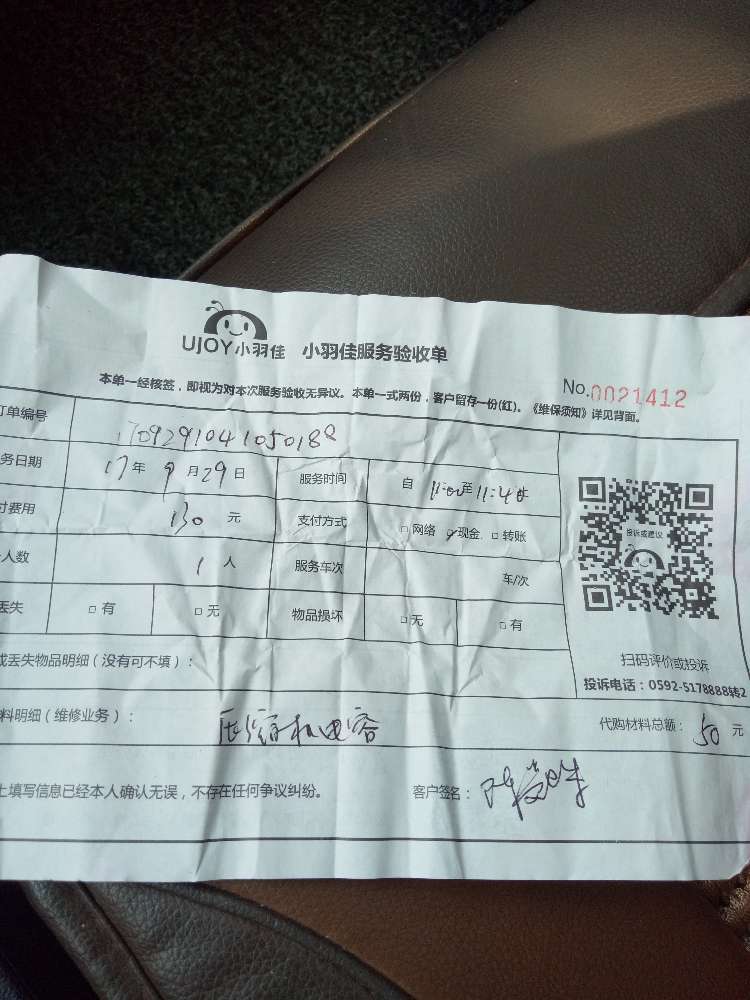 UJOY小羽佳 小羽佳服务验收单
本单一经核签,即视为对本次服务验收无异议。本单一式两份,客户留存一份(红)。《维保须知》详见背面。
No.0021412
订单编号 170929104105018
务日期 17年 9月29日 服务时间 自 11:00至11:40
付费用 130 元 支付方式 □网络 □现金 □转账
人数 1 人 服务车次 车/次
丢失 □有 □无 物品损坏 □无 □有
投诉或建议
扫码评价或投诉
投诉电话:0592-5178888转2
或丢失物品明细(没有可不填):
料明细(维修业务): 压缩机电容 代购材料总额: 50 元
上填写信息已经本人确认无误,不存在任何争议纠纷。 客户签名: